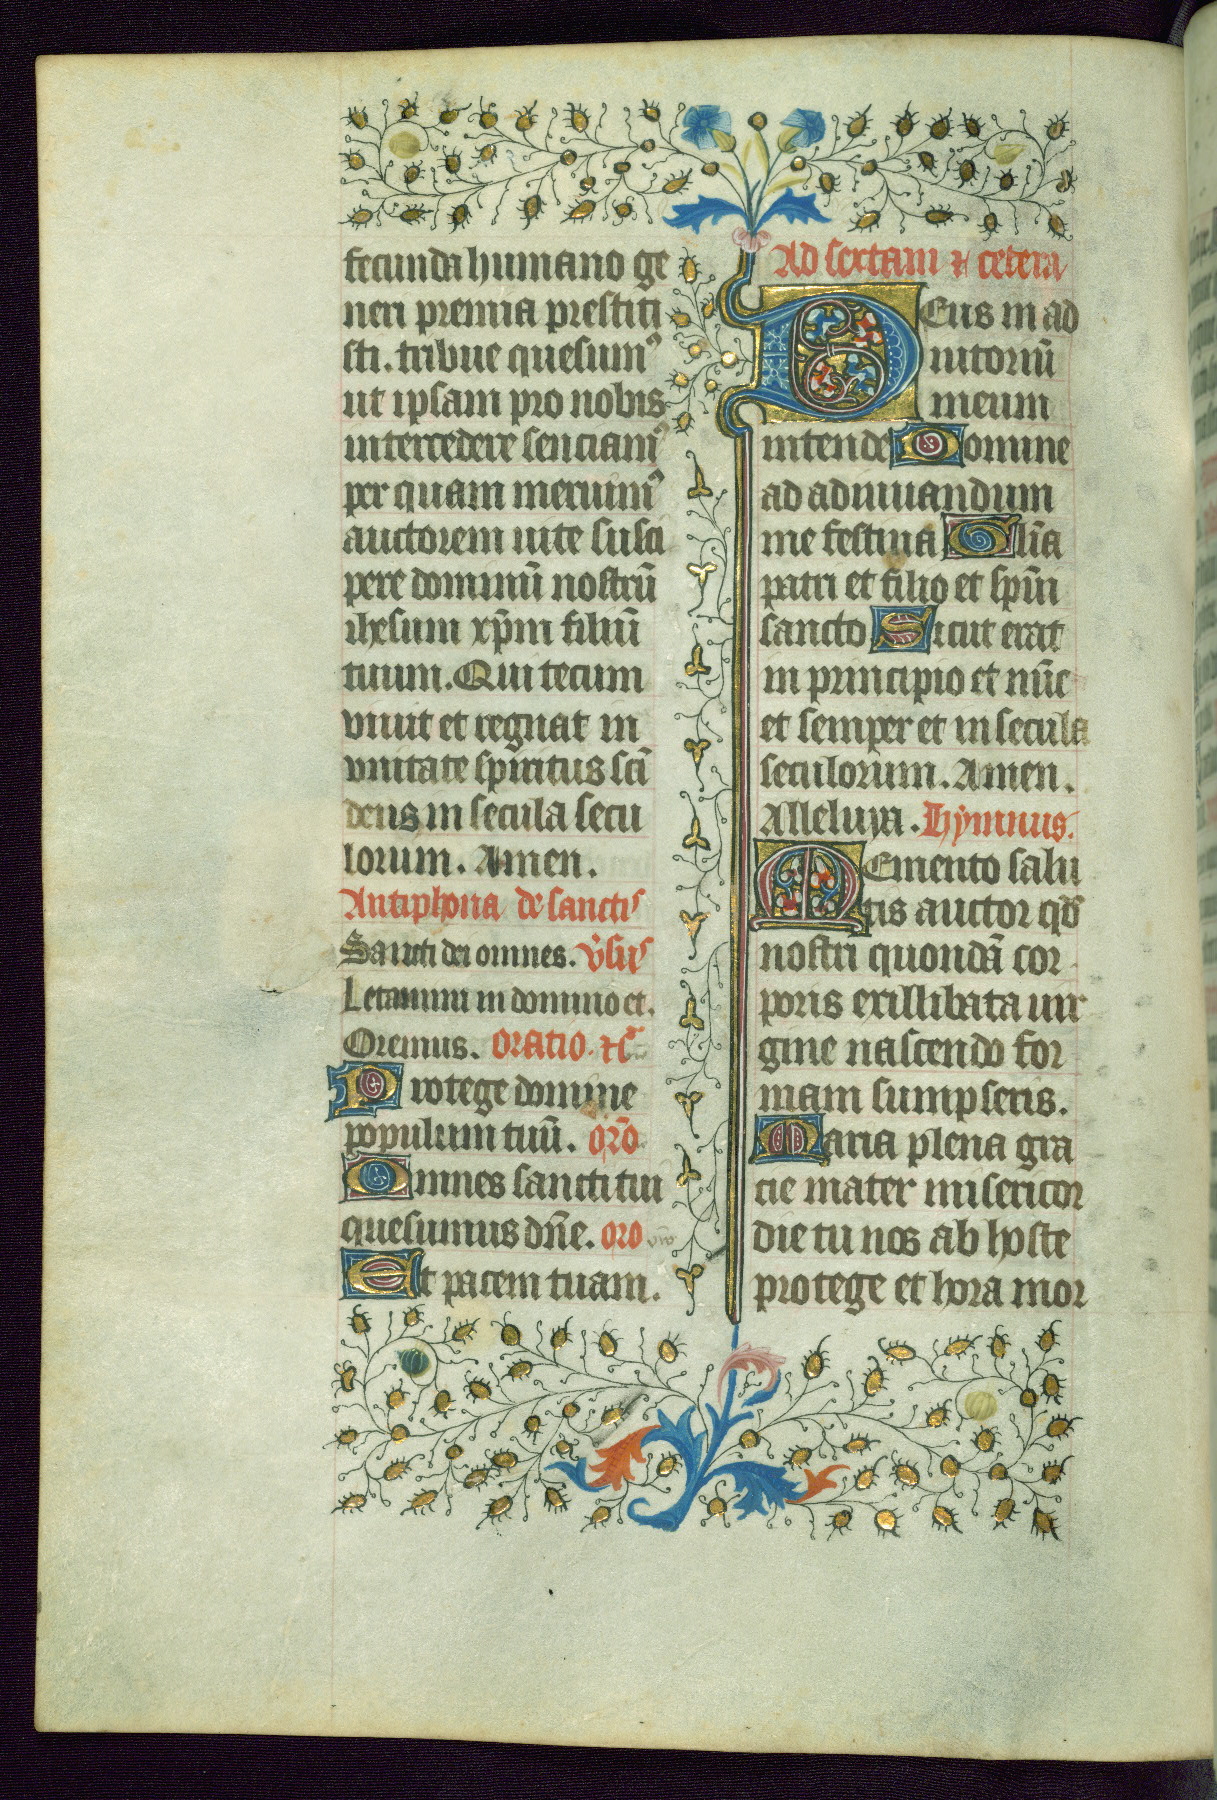 fecunda humano ge
neri premia prestiti
sti. tribue quesumꝰ
ut ipsam pro nobis
intercedere senciamꝰ
per quam meruimꝰ
auctorem uite susci
pere dominū nostrū
ihesum xp̄m filiū
tuum. Qui tecum
viuit et regnat in
vnitate spiritus sc̄i
deus in secula secu
lorum. Amen.
Antiphona de sanctis
Sancti dei omnes. v̄sus
Letamini in domino et.
Oremus. oratio. ⁊c̄
Protege domine
populum tuū. or̄o
Omnes sancti tui
quesumus dn̄e. oro
Et pacem tuam.
Ad sextam ⁊ cetera
Deus in ad
iutoriū
meum
intende Domine
ad adiuuandum
me festina Gl̄ia
patri et filio et sp̄ui
sancto Sicut erat
in principio et nūc
et semper et in secula
seculorum. Amen.
Alleluya. Hymnus.
Memento salu
tis auctor qd̄
nostri quondā cor
poris ex illibata uir
gine nascendo for
mam sumpseris.
Maria plena gra
cie mater misericor
die tu nos ab hoste
protege et hora mor